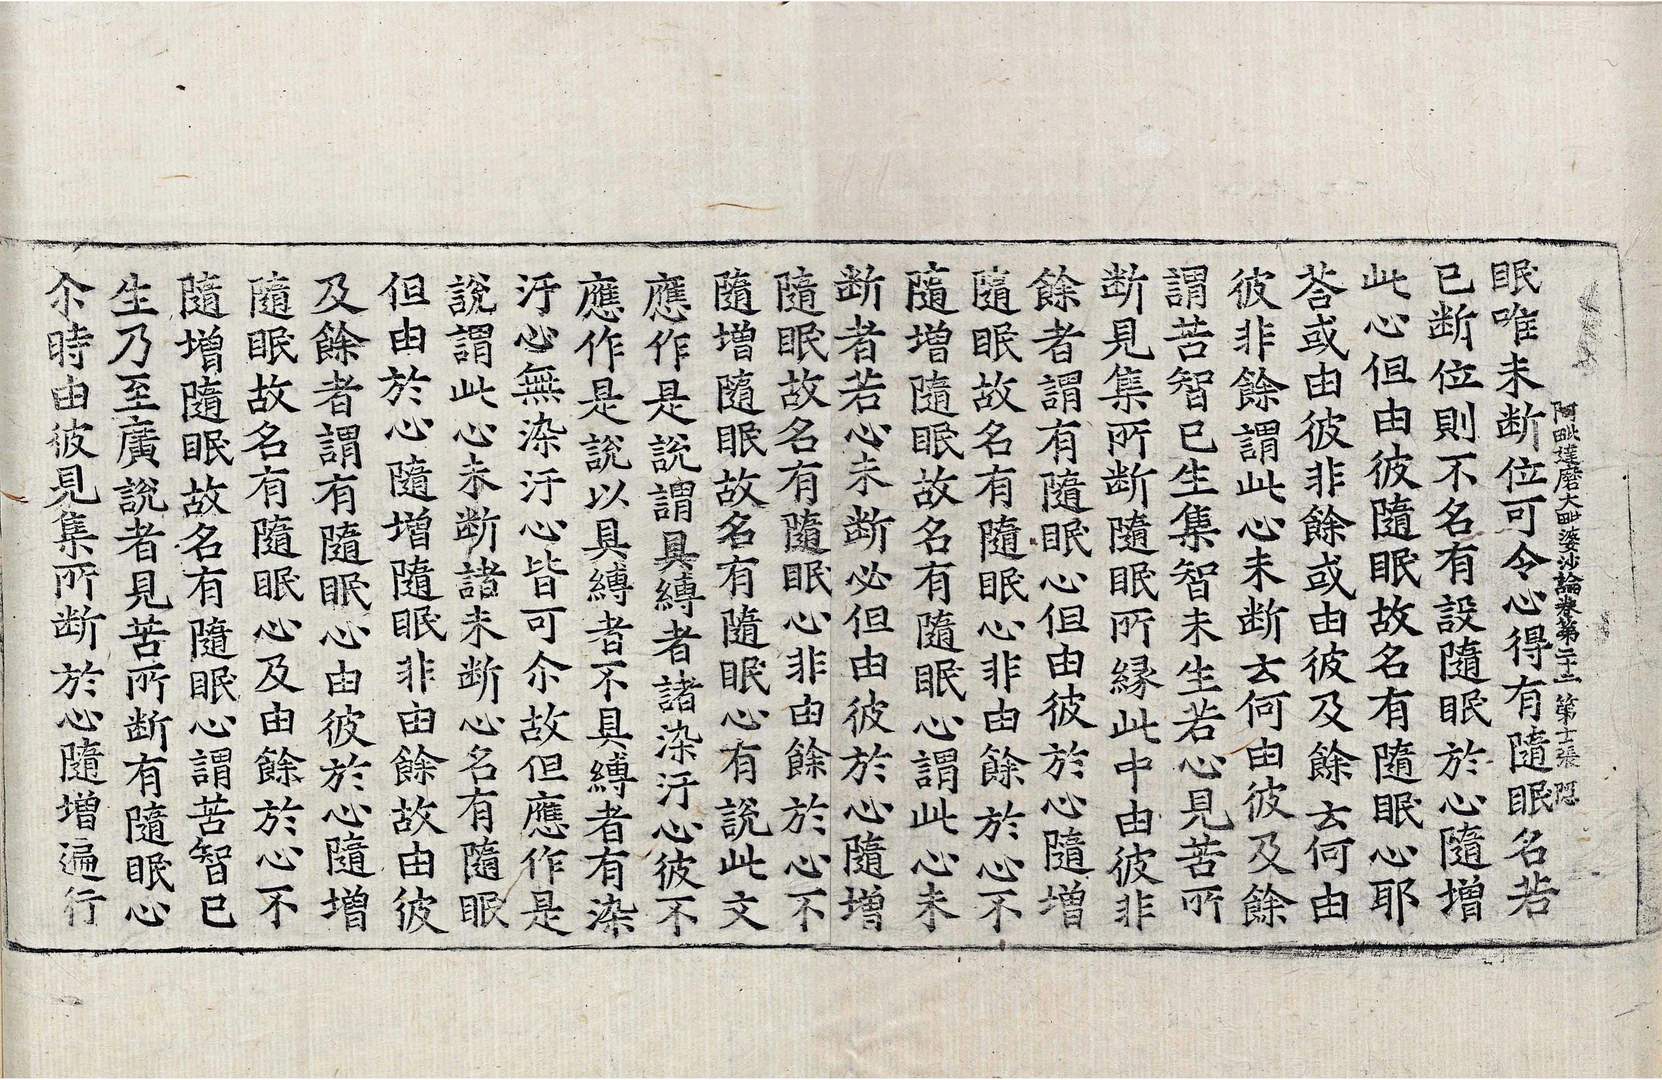 阿毗達磨大毗婆沙論卷第二十二 第十張 隠
眠唯未断位可令心得有隨眠名若
已断位則不名有設隨眠於心隨增
此心但由彼隨眠故名有隨眠心耶
荅或由彼非餘或由彼及餘云何由
彼非餘謂此心未断云何由彼及餘
謂苦智已生集智未生若心見苦所
断見集所断隨眠所緣此中由彼非
餘者謂有隨眠心但由彼於心隨增
隨眠故名有隨眠心非由餘於心不
隨增隨眠故名有隨眠心謂此心未
断者若心未断必但由彼於心隨增
隨眠故名有隨眠心非由餘於心不
隨增隨眠故名有隨眠心有說此文
應作是說謂具縛者諸染汙心彼不
應作是說以具縛者不具縛者有染
汙心無染汙心皆可尒故但應作是
說謂此心未断諸未断心名有隨眠
但由於心隨增隨眠非由餘故由彼
及餘者謂有隨眠心由彼於心隨增
隨眠故名有隨眠心及由餘於心不
隨增隨眠故名有隨眠心謂苦智已
生乃至廣說者見苦所断有隨眠心
尒時由彼見集所断於心隨增遍行